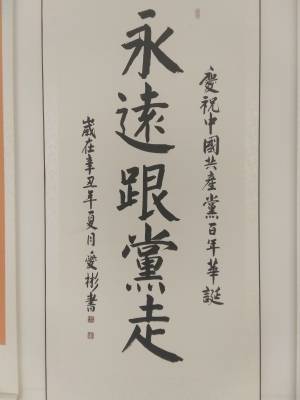 慶祝中國共產黨百年華誕
永遠跟黨走
歲在辛丑年夏月愛彬書